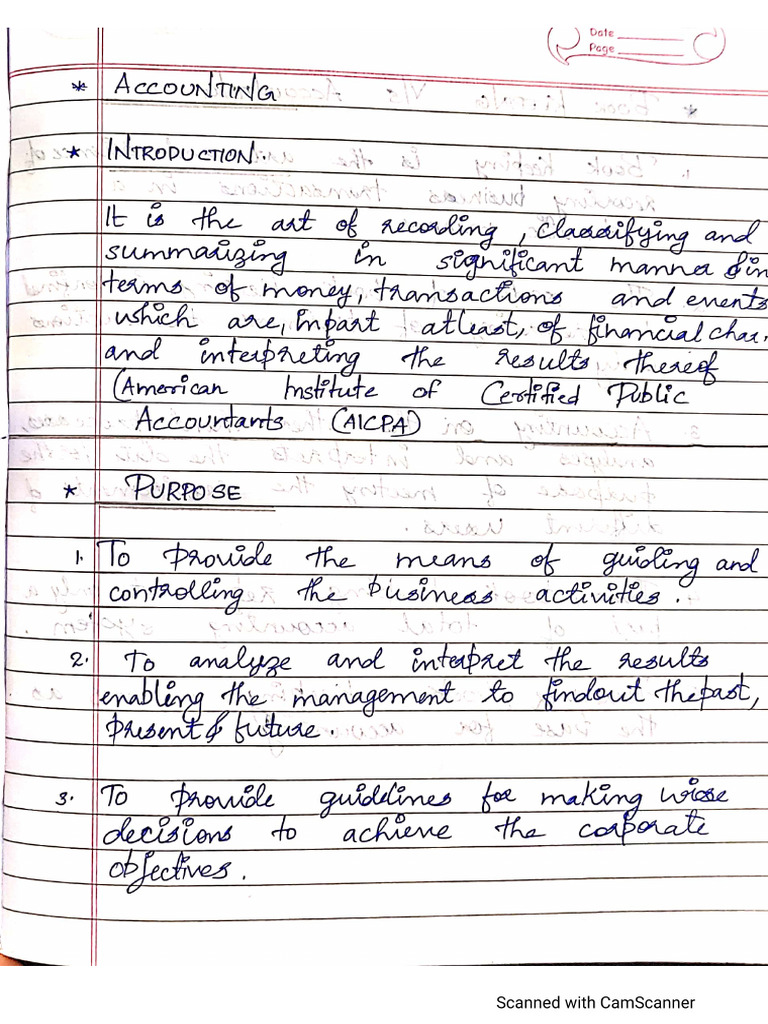 Date
Page
* ACCOUNTING
* INTRODUCTION.
It is the art of recording, classifying and
summarizing in significant manner & in
terms of money, transactions and events
which are, inpart atleast, of financial char.
and interpreting the results thereof
(American Institute of Certified Public
Accountants (AICPA)
* PURPOSE
1. To provide the means of guiding and
controlling the business activities.
2. To analyze and interpret the results
enabling the management to findout the past,
present & future.
3. To provide guidelines for making wise
decisions to achieve the corporate
objectives.
Scanned with CamScanner